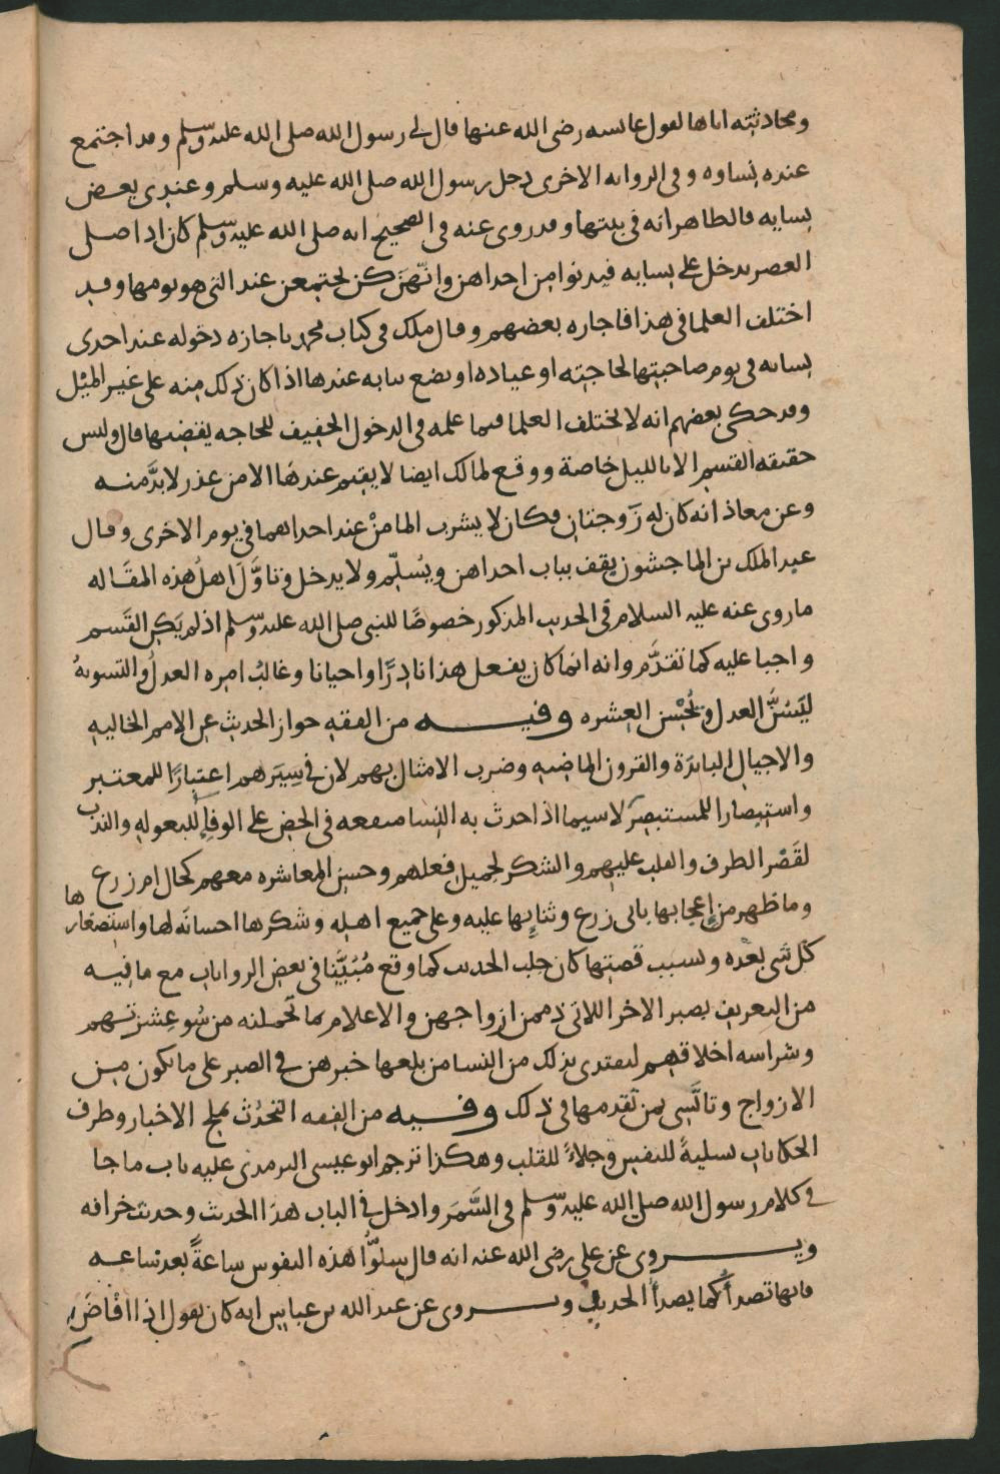 ومحادثته اياها لقول عائسه رضى الله عنها قال لى رسول الله صلى الله عليه وسلم وقد اجتمع
عنده نساوه وفى الروايه الاخرى دخل رسول الله صلى الله عليه وسلم وعندى بعض
نسايه فالظاهر انه فى بيتها وقد روى عنه فى الصحيح انه صلى الله عليه وسلم كان اذا صلى
العصر يدخل على نسايه فيدنوا من احداهن وانهن كن يجتمعن عند التى هو يومها وقد
اختلف العلما فى هذا فاجازه بعضهم وقال ملك فى كتاب محمد باجازه دخوله عند احدى
نسائه فى يوم صاحبتها لحاجته او عياده او يضع ثيابه عندها اذا كان ذلك منه على غير الميل
وقد حكى بعضهم انه لا يختلف العلما فيما علمه فى الدخول الخفيف للحاجه يقضيها قال وليس
حقيقه القسم الا بالليل خاصة ووقع لمالك ايضا لا يقيم عندها الا من عذر لا بدَّ منه
وعن معاذ انه كان له زَوجتان فكان لا يشرب الما منْ عند احداهما فى يوم الاخرى وقال
عبد الملك بن الماجشون يقف بباب احداهن ويُسلّم ولا يدخل وتاوَّلَ اهلُ هذه المقَاله
ما روى عنه عليه السلام فى الحديث المذكور خصوصًا للنبى صلى الله عليه وسلم اذ لم يكن القَسم
واجبا عليه كما تقدَّم وانه انما كان يفعل هذا نادِرًا واحيانا وغالبُ امره العدلُ والتسويةُ
ليَسُنَّ العدل وبحُسْن العشره وفيه من الفقه جواز الحديث عن الامم الخاليه
والاجيال البائدَة والقرون الماضيه وضرب الامثال بهم لان فى سِيَرهم اعتبارًا للمعتبر
واستبصارا للمستبصر لا سيما اذا حدث به النسا منفعه فى الحض على الوفاِ للبعوله والندب
لقَصْر الطرف والقلب عليهم والشكر لجميل فعلهم وحسن المعاشره معهم كحال ام زرع
وما ظهر من إعجابها بابى زرع وثنايها عليه وعلى جميع اهله وشكرها احسانَه لها واستصغارها
كل شى بعْده وبسبب قصتها كان جلب الحديث كما وقع مُبَيَّنا فى بعض الروايات مع ما فيه
من التعريف بصبر الاخر اللاتى ذممن ازواجهن والاعلام بما تحملنه من سُو عِشرتهم
وشراسه اخلاقهم ليقتدى بذلك من النسا من بلغها خبرهن فى الصبر على ما يكون من
الازواج وتاتَّسى بمن تقدمها فى ذلك وفيه من الفقه التحدُث بملح الاخبار وطرف
الحكايات تسليةً للنفس وجلاءً للقلب وهكذا ترجم ابو عيسى الترمذى عليه باب ما جا
فى كلام رسول الله صلى الله عليه وسلم فى السَّمَر وادخل فى الباب هذا الحديث وحديث خرافه
ويروى عن على رضى الله عنه انه قال سلوّا هذه النفوس ساعةً بعد ساعه
فانها تصدأ كما يصدأ الحديد ويروى عن عبد الله بن عباس انه كان يقول اذا افاضَ